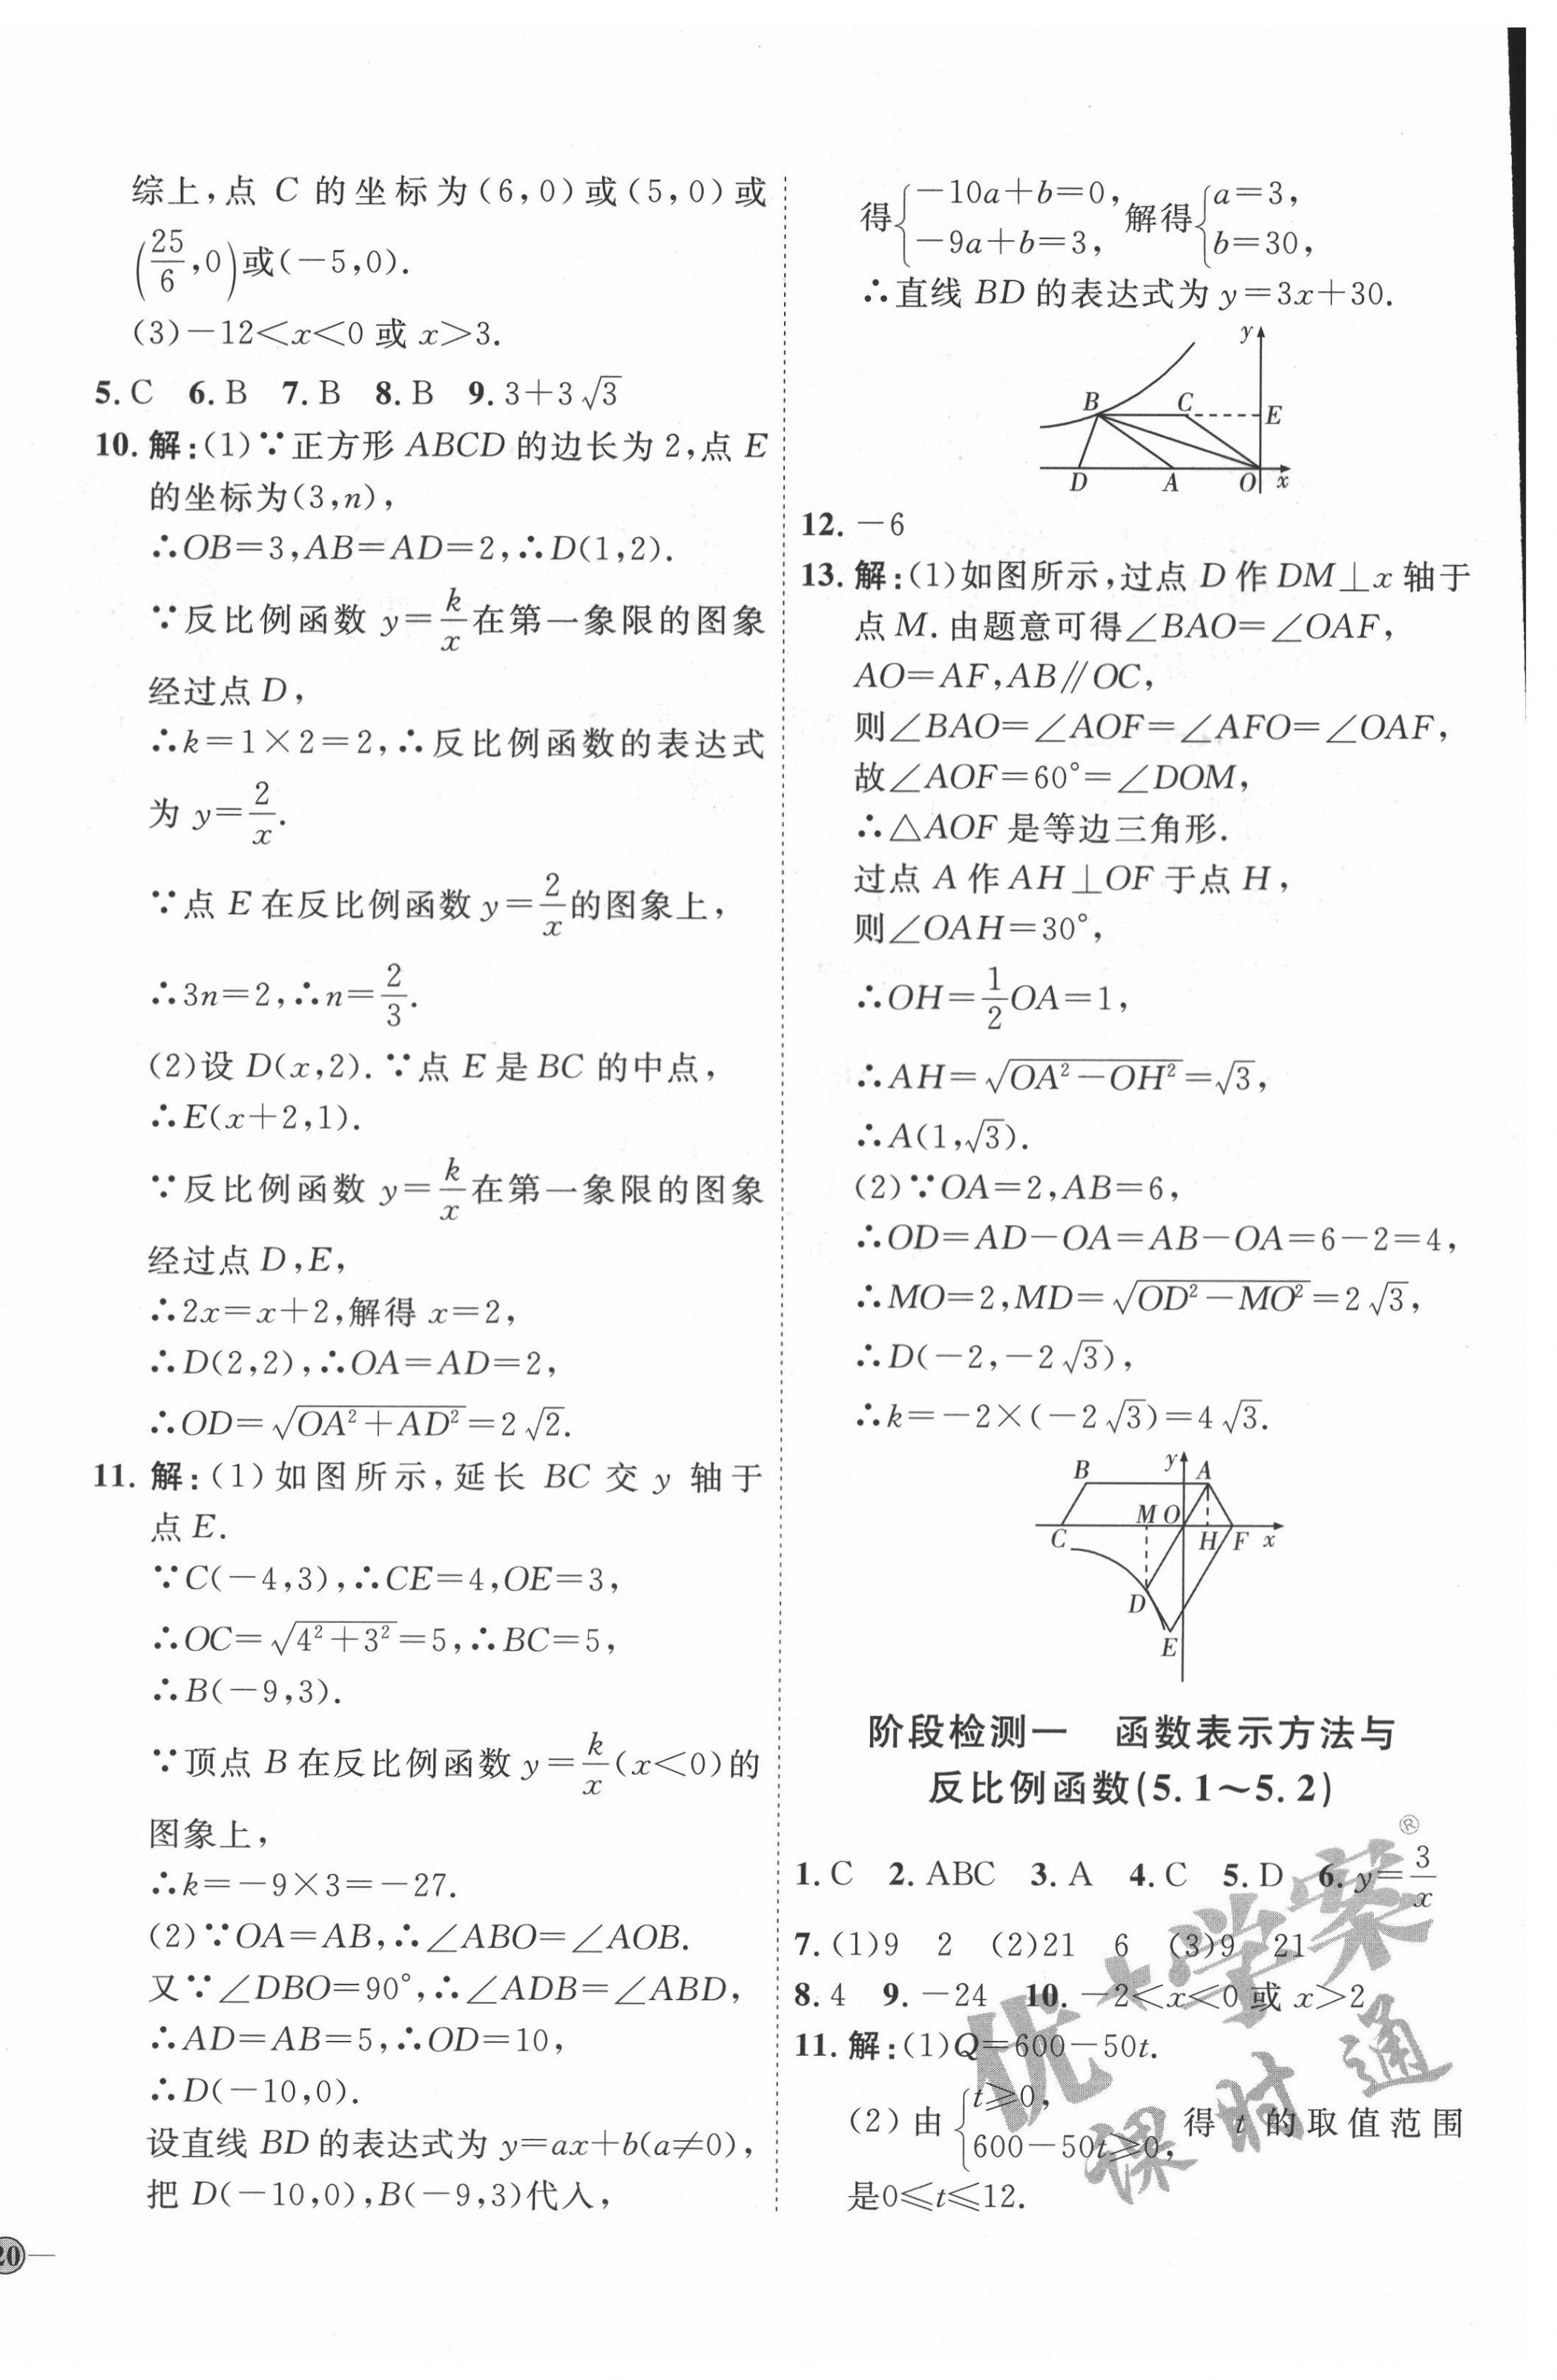 综上,点 C 的坐标为(6,0)或(5,0)或
(25/6,0)或(-5,0).
(3)-12<x<0 或 x>3.
5.C 6.B 7.B 8.B 9.3+3√3
10.解:(1)∵正方形 ABCD 的边长为 2,点 E
的坐标为(3,n),
∴OB=3,AB=AD=2,∴D(1,2).
∵反比例函数 y=k/x在第一象限的图象
经过点 D,
∴k=1×2=2,∴反比例函数的表达式
为 y=2/x.
∵点 E 在反比例函数 y=2/x的图象上,
∴3n=2,∴n=2/3.
(2)设 D(x,2).∵点 E 是 BC 的中点,
∴E(x+2,1).
∵反比例函数 y=k/x在第一象限的图象
经过点 D,E,
∴2x=x+2,解得 x=2,
∴D(2,2),∴OA=AD=2,
∴OD=√(OA²+AD²)=2√2.
11.解:(1)如图所示,延长 BC 交 y 轴于
点 E.
∵C(-4,3),∴CE=4,OE=3,
∴OC=√(4²+3²)=5,∴BC=5,
∴B(-9,3).
∵顶点 B 在反比例函数 y=k/x(x<0)的
图象上,
∴k=-9×3=-27.
(2)∵OA=AB,∴∠ABO=∠AOB.
又∵∠DBO=90°,∴∠ADB=∠ABD,
∴AD=AB=5,∴OD=10,
∴D(-10,0).
设直线 BD 的表达式为 y=ax+b(a≠0),
把 D(-10,0),B(-9,3)代入,
20
得{-10a+b=0, -9a+b=3, 解得{a=3, b=30,
∴直线 BD 的表达式为 y=3x+30.
y
B C E
D A O x
12.-6
13.解:(1)如图所示,过点 D 作 DM⊥x 轴于
点 M.由题意可得∠BAO=∠OAF,
AO=AF,AB∥OC,
则∠BAO=∠AOF=∠AFO=∠OAF,
故∠AOF=60°=∠DOM,
∴△AOF 是等边三角形.
过点 A 作 AH⊥OF 于点 H,
则∠OAH=30°,
∴OH=1/2OA=1,
∴AH=√(OA²-OH²)=√3,
∴A(1,√3).
(2)∵OA=2,AB=6,
∴OD=AD-OA=AB-OA=6-2=4,
∴MO=2,MD=√(OD²-MO²)=2√3,
∴D(-2,-2√3),
∴k=-2×(-2√3)=4√3.
B y A
M O
C H F x
D
E
阶段检测一 函数表示方法与
反比例函数(5.1~5.2)
1.C 2.ABC 3.A 4.C 5.D 6.y=3/x
7.(1)9 2 (2)21 6 (3)9 21
8.4 9.-24 10.-2<x<0 或 x>2
11.解:(1)Q=600-50t.
(2)由{t≥0, 600-50t≥0, 得 t 的取值范围
是0≤t≤12.
优+学案®
课时通